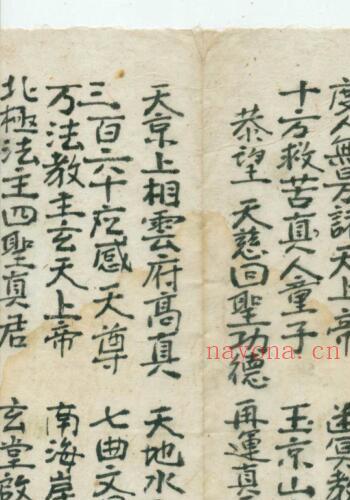 度人無量諸天上帝
十方救苦真人童子 玉京山
恭望 天慈回聖功德 再運真
天京上相雲府高真 天地水
三百六十应感天尊 七曲文
万法教主玄天上帝 南海岸
北極法主四聖真君 玄堂啟
nayona.cn